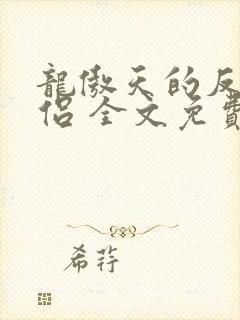 龍傲天的反
侶 全文免費
希荇